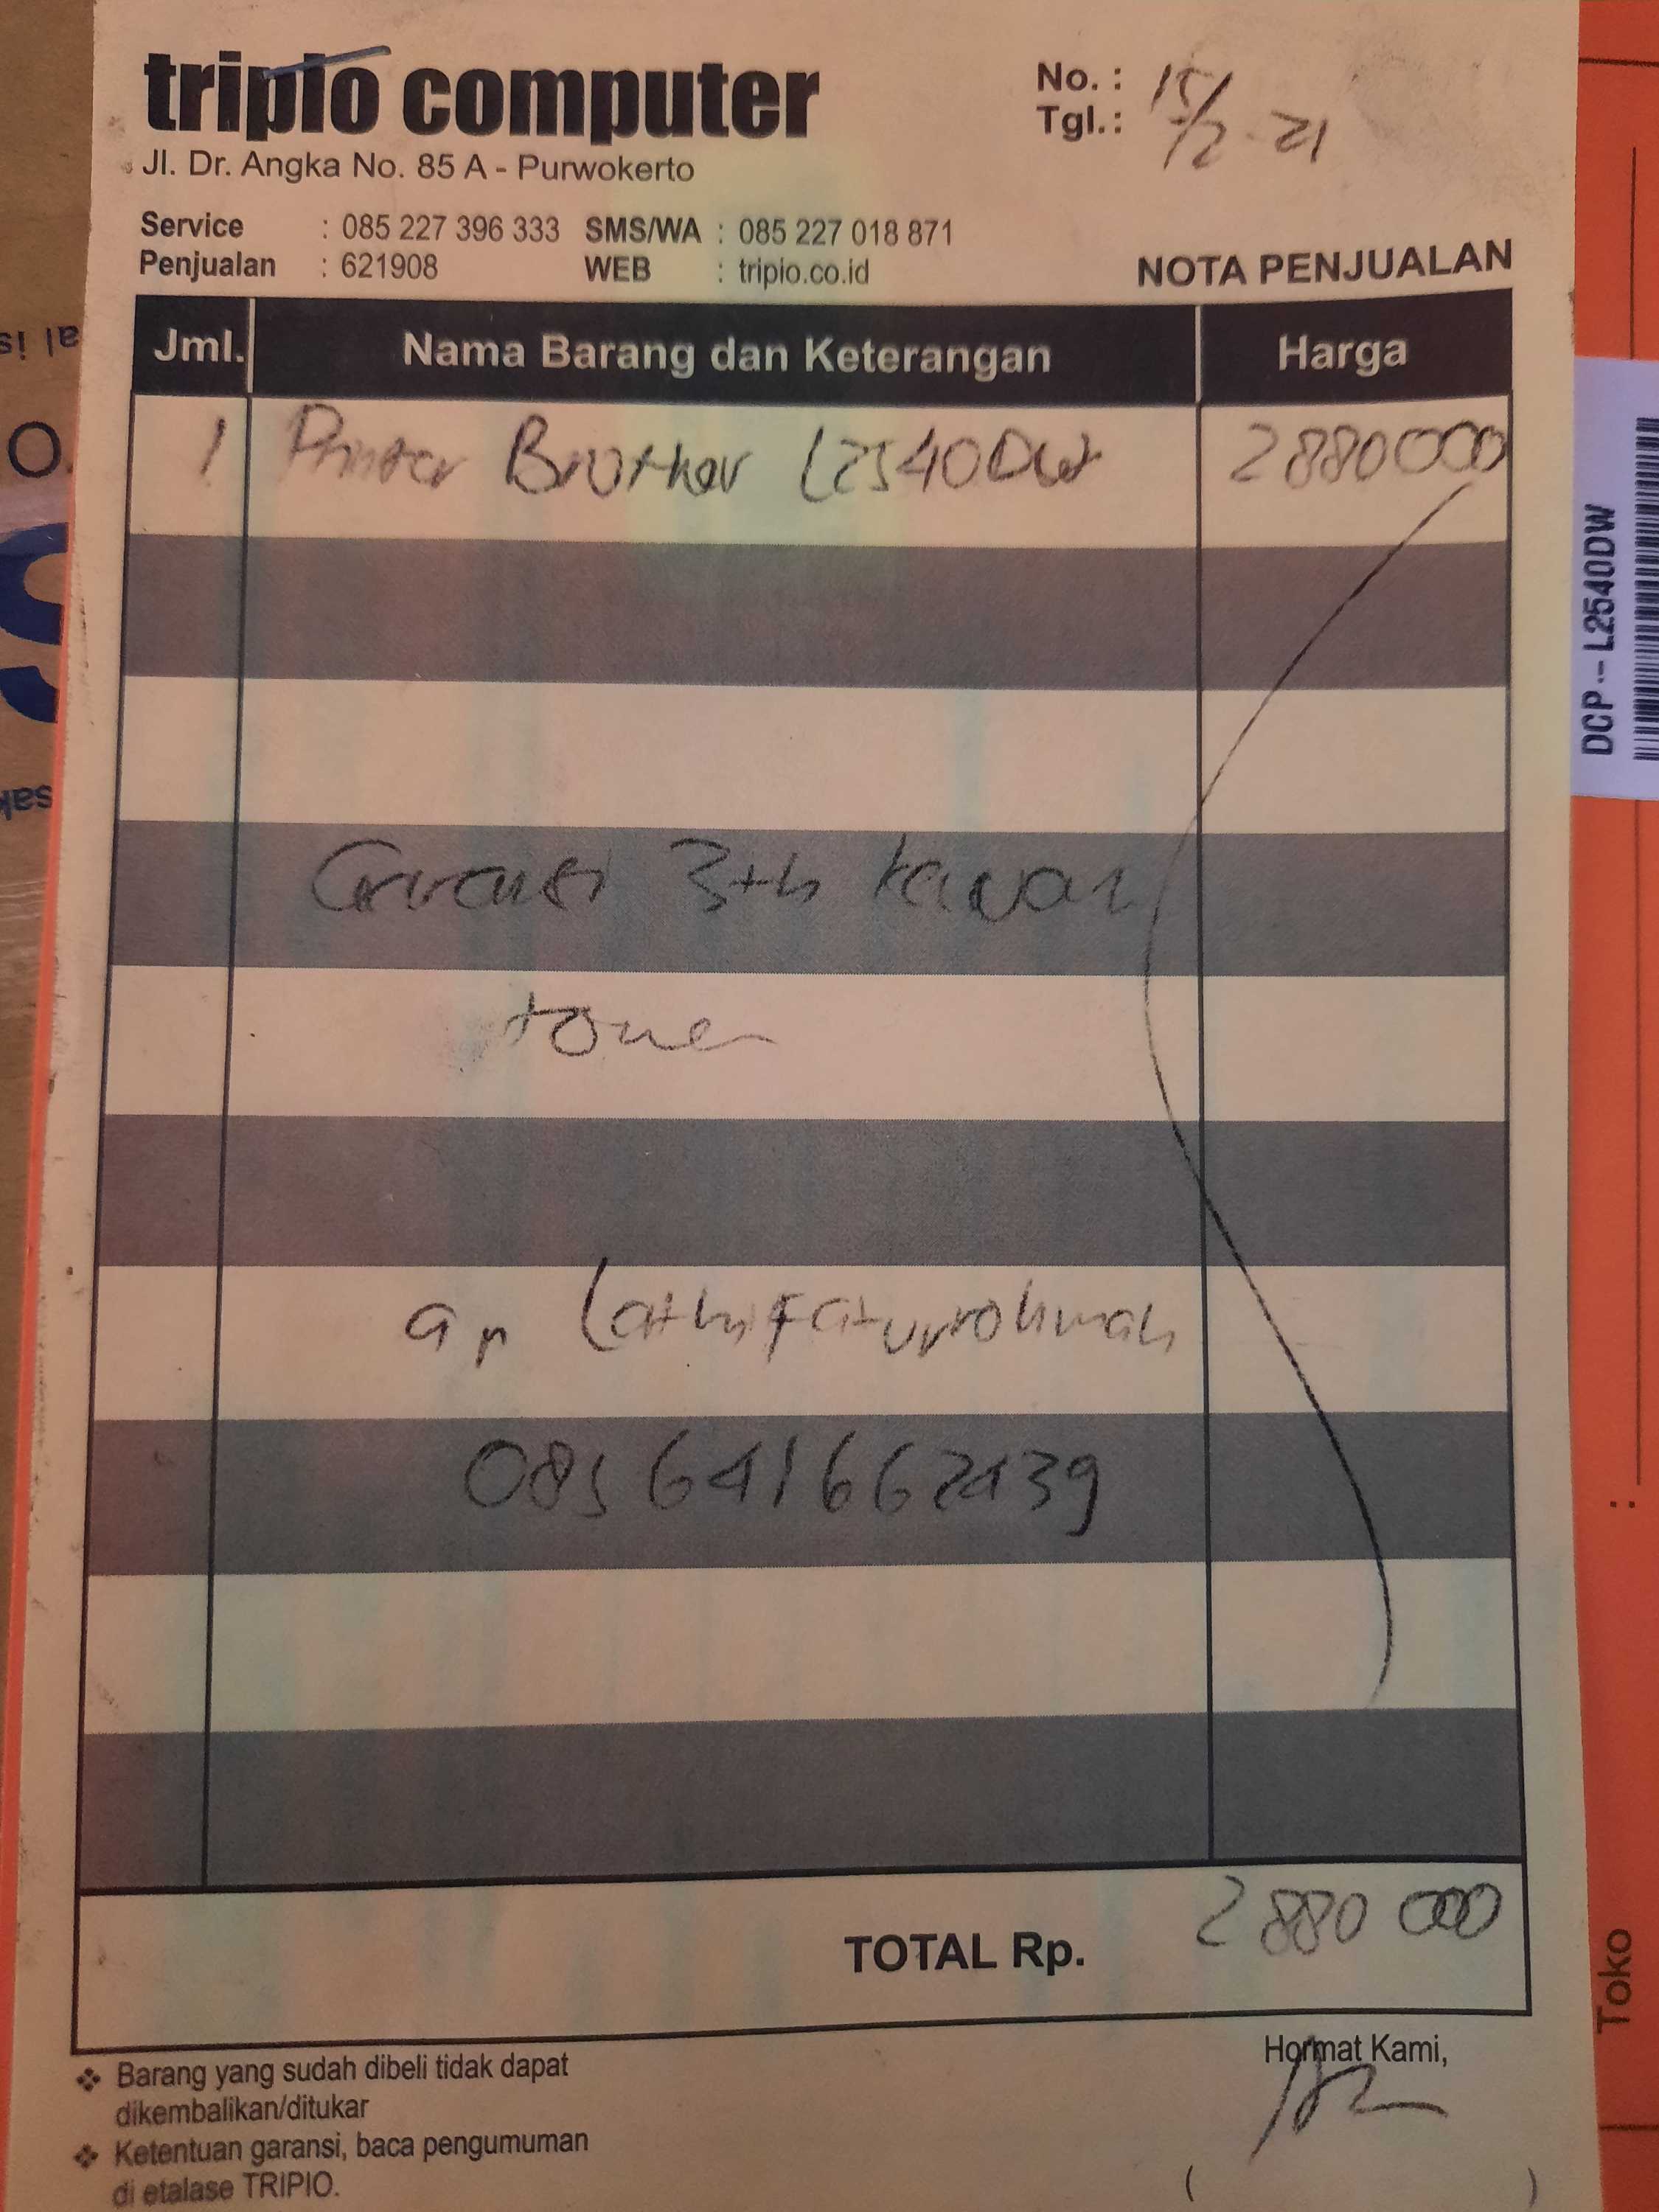 tripio computer
Jl. Dr. Angka No. 85 A - Purwokerto
No. :
Tgl.: 15/2-21
Service : 085 227 396 333 SMS/WA : 085 227 018 871
Penjualan : 621908 WEB : tripio.co.id
NOTA PENJUALAN
Jml. Nama Barang dan Keterangan Harga
1 Printer Brother L2540DW 2880000
Garansi 3th kecuali
toner
an Lathif Faturrohmah
TOTAL Rp. 2880 000
Hormat Kami,
Barang yang sudah dibeli tidak dapat
dikembalikan/ditukar
Ketentuan garansi, baca pengumuman
di etalase TRIPIO.
( )
DCP-L2540DW
Toko